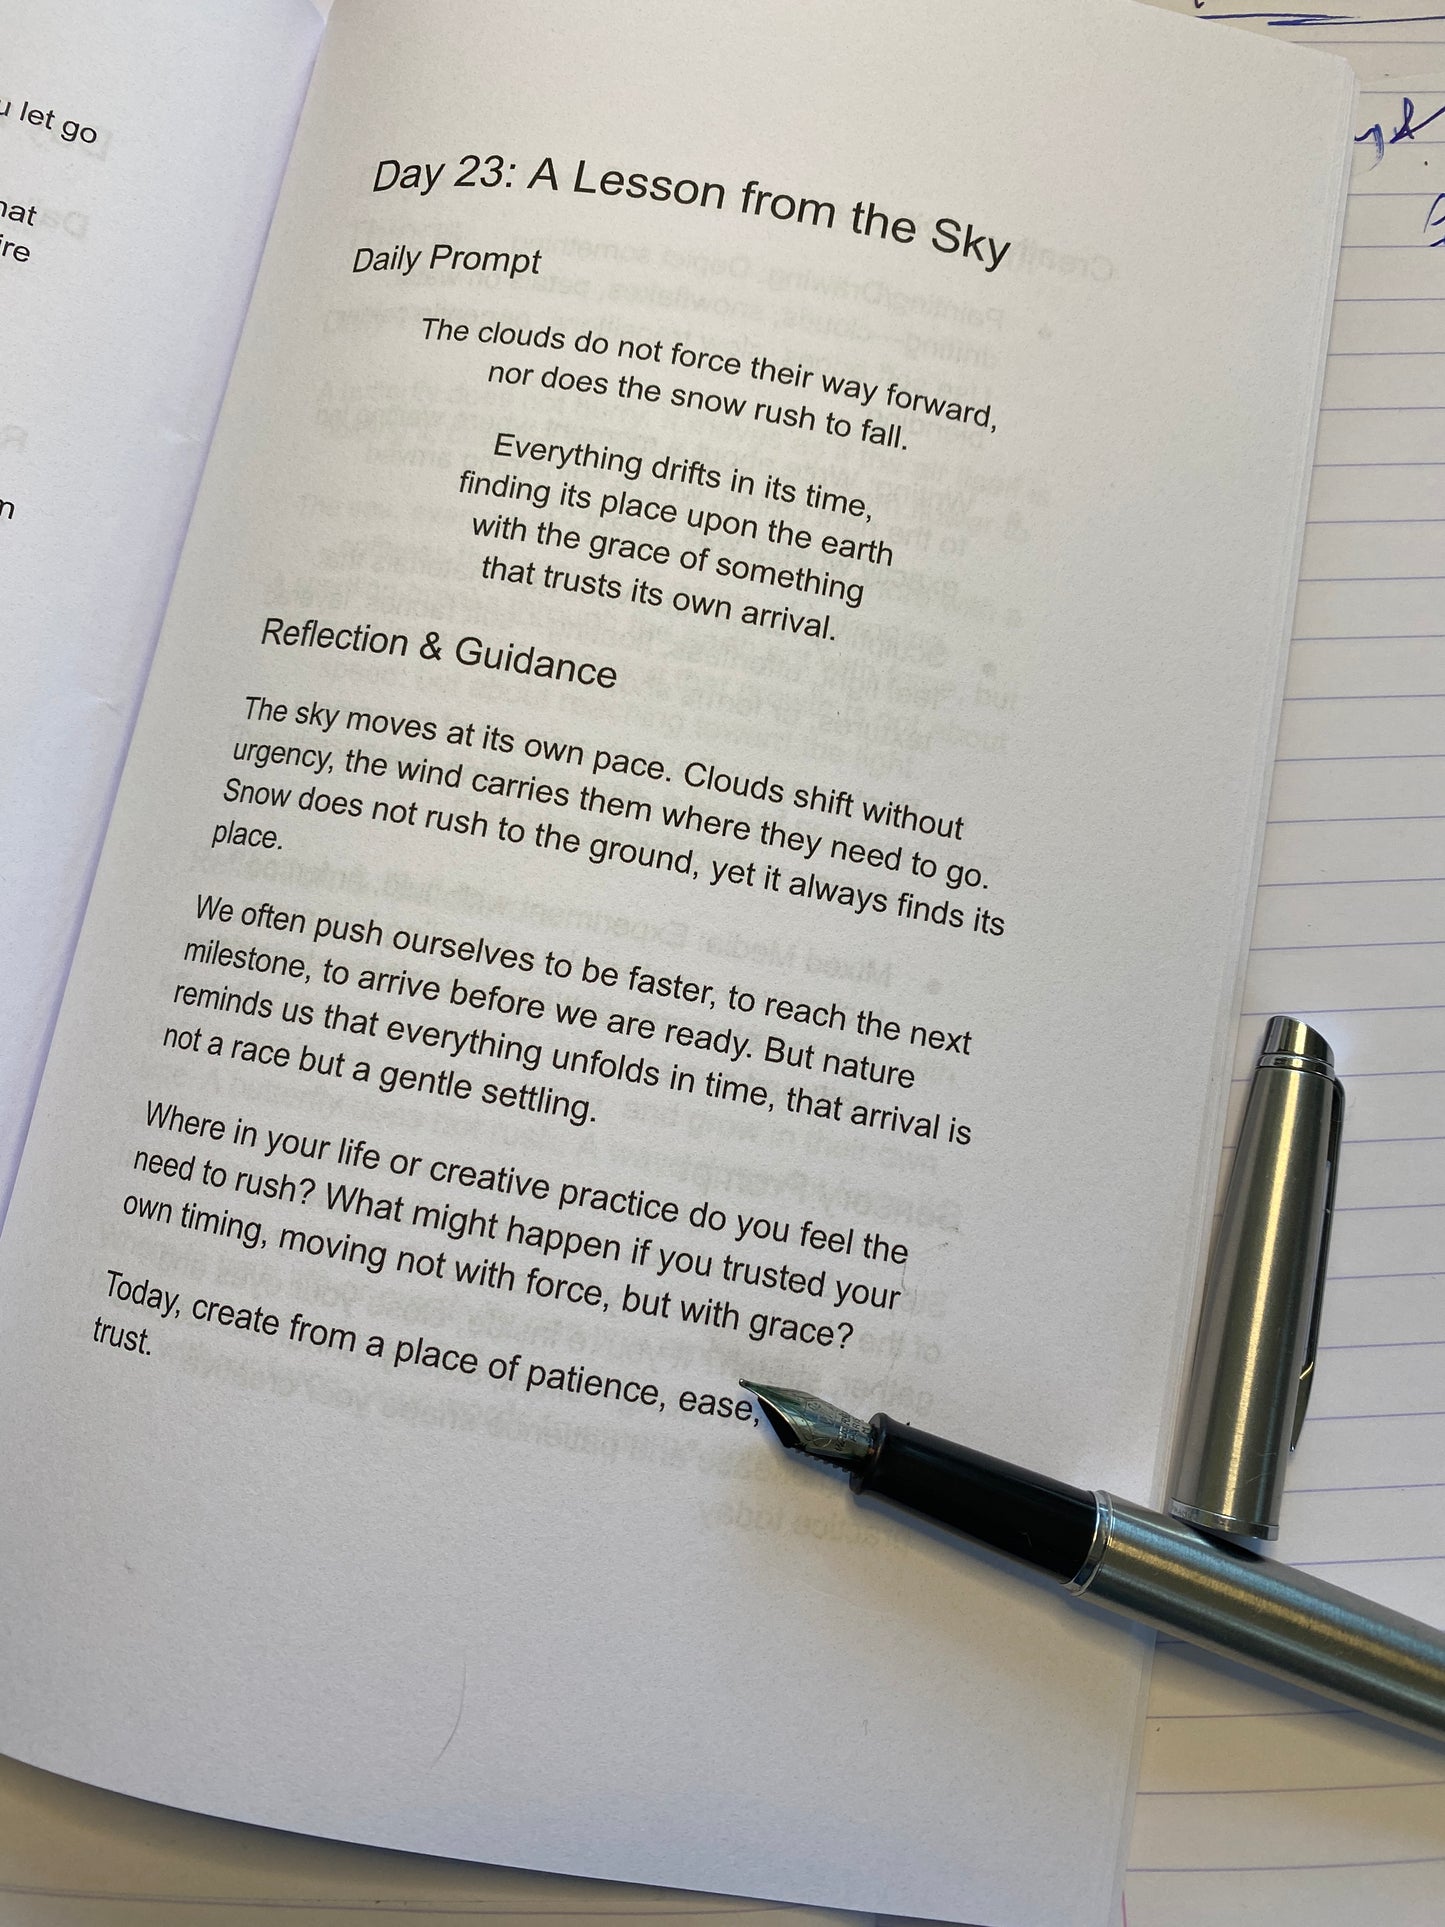 u let go
Day 23: A Lesson from the Sky
Daily Prompt
The clouds do not force their way forward,
nor does the snow rush to fall.
Everything drifts in its time,
finding its place upon the earth
with the grace of something
that trusts its own arrival.
Reflection & Guidance
The sky moves at its own pace. Clouds shift without
urgency, the wind carries them where they need to go.
Snow does not rush to the ground, yet it always finds its
place.
We often push ourselves to be faster, to reach the next
milestone, to arrive before we are ready. But nature
reminds us that everything unfolds in time, that arrival is
not a race but a gentle settling.
Where in your life or creative practice do you feel the
need to rush? What might happen if you trusted your
own timing, moving not with force, but with grace?
Today, create from a place of patience, ease,
trust.